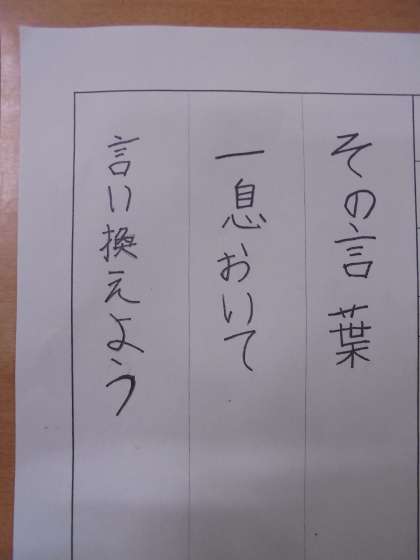 その言葉
一息おいて
言い換えよう